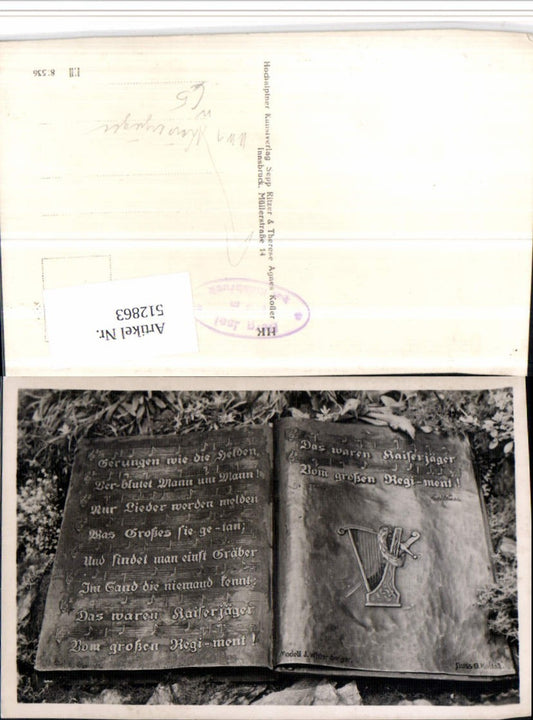 8°536
Hochalpiner Kunstverlag Sepp Ritzer & Therese Agnes Koßer
Innsbruck, Müllerstraße 14
HK
Artikel Nr.
512863
Gerungen wie die Helden,
Ver-blutet Mann um Mann!
Nur Lieder werden melden
Was Großes sie ge-tan;
Und findet man einst Gräber
Im Sand die niemand kennt;
Das waren Kaiserjäger
Vom großen Regi-ment!
Das waren Kaiserjäger
Vom großen Regi-ment!